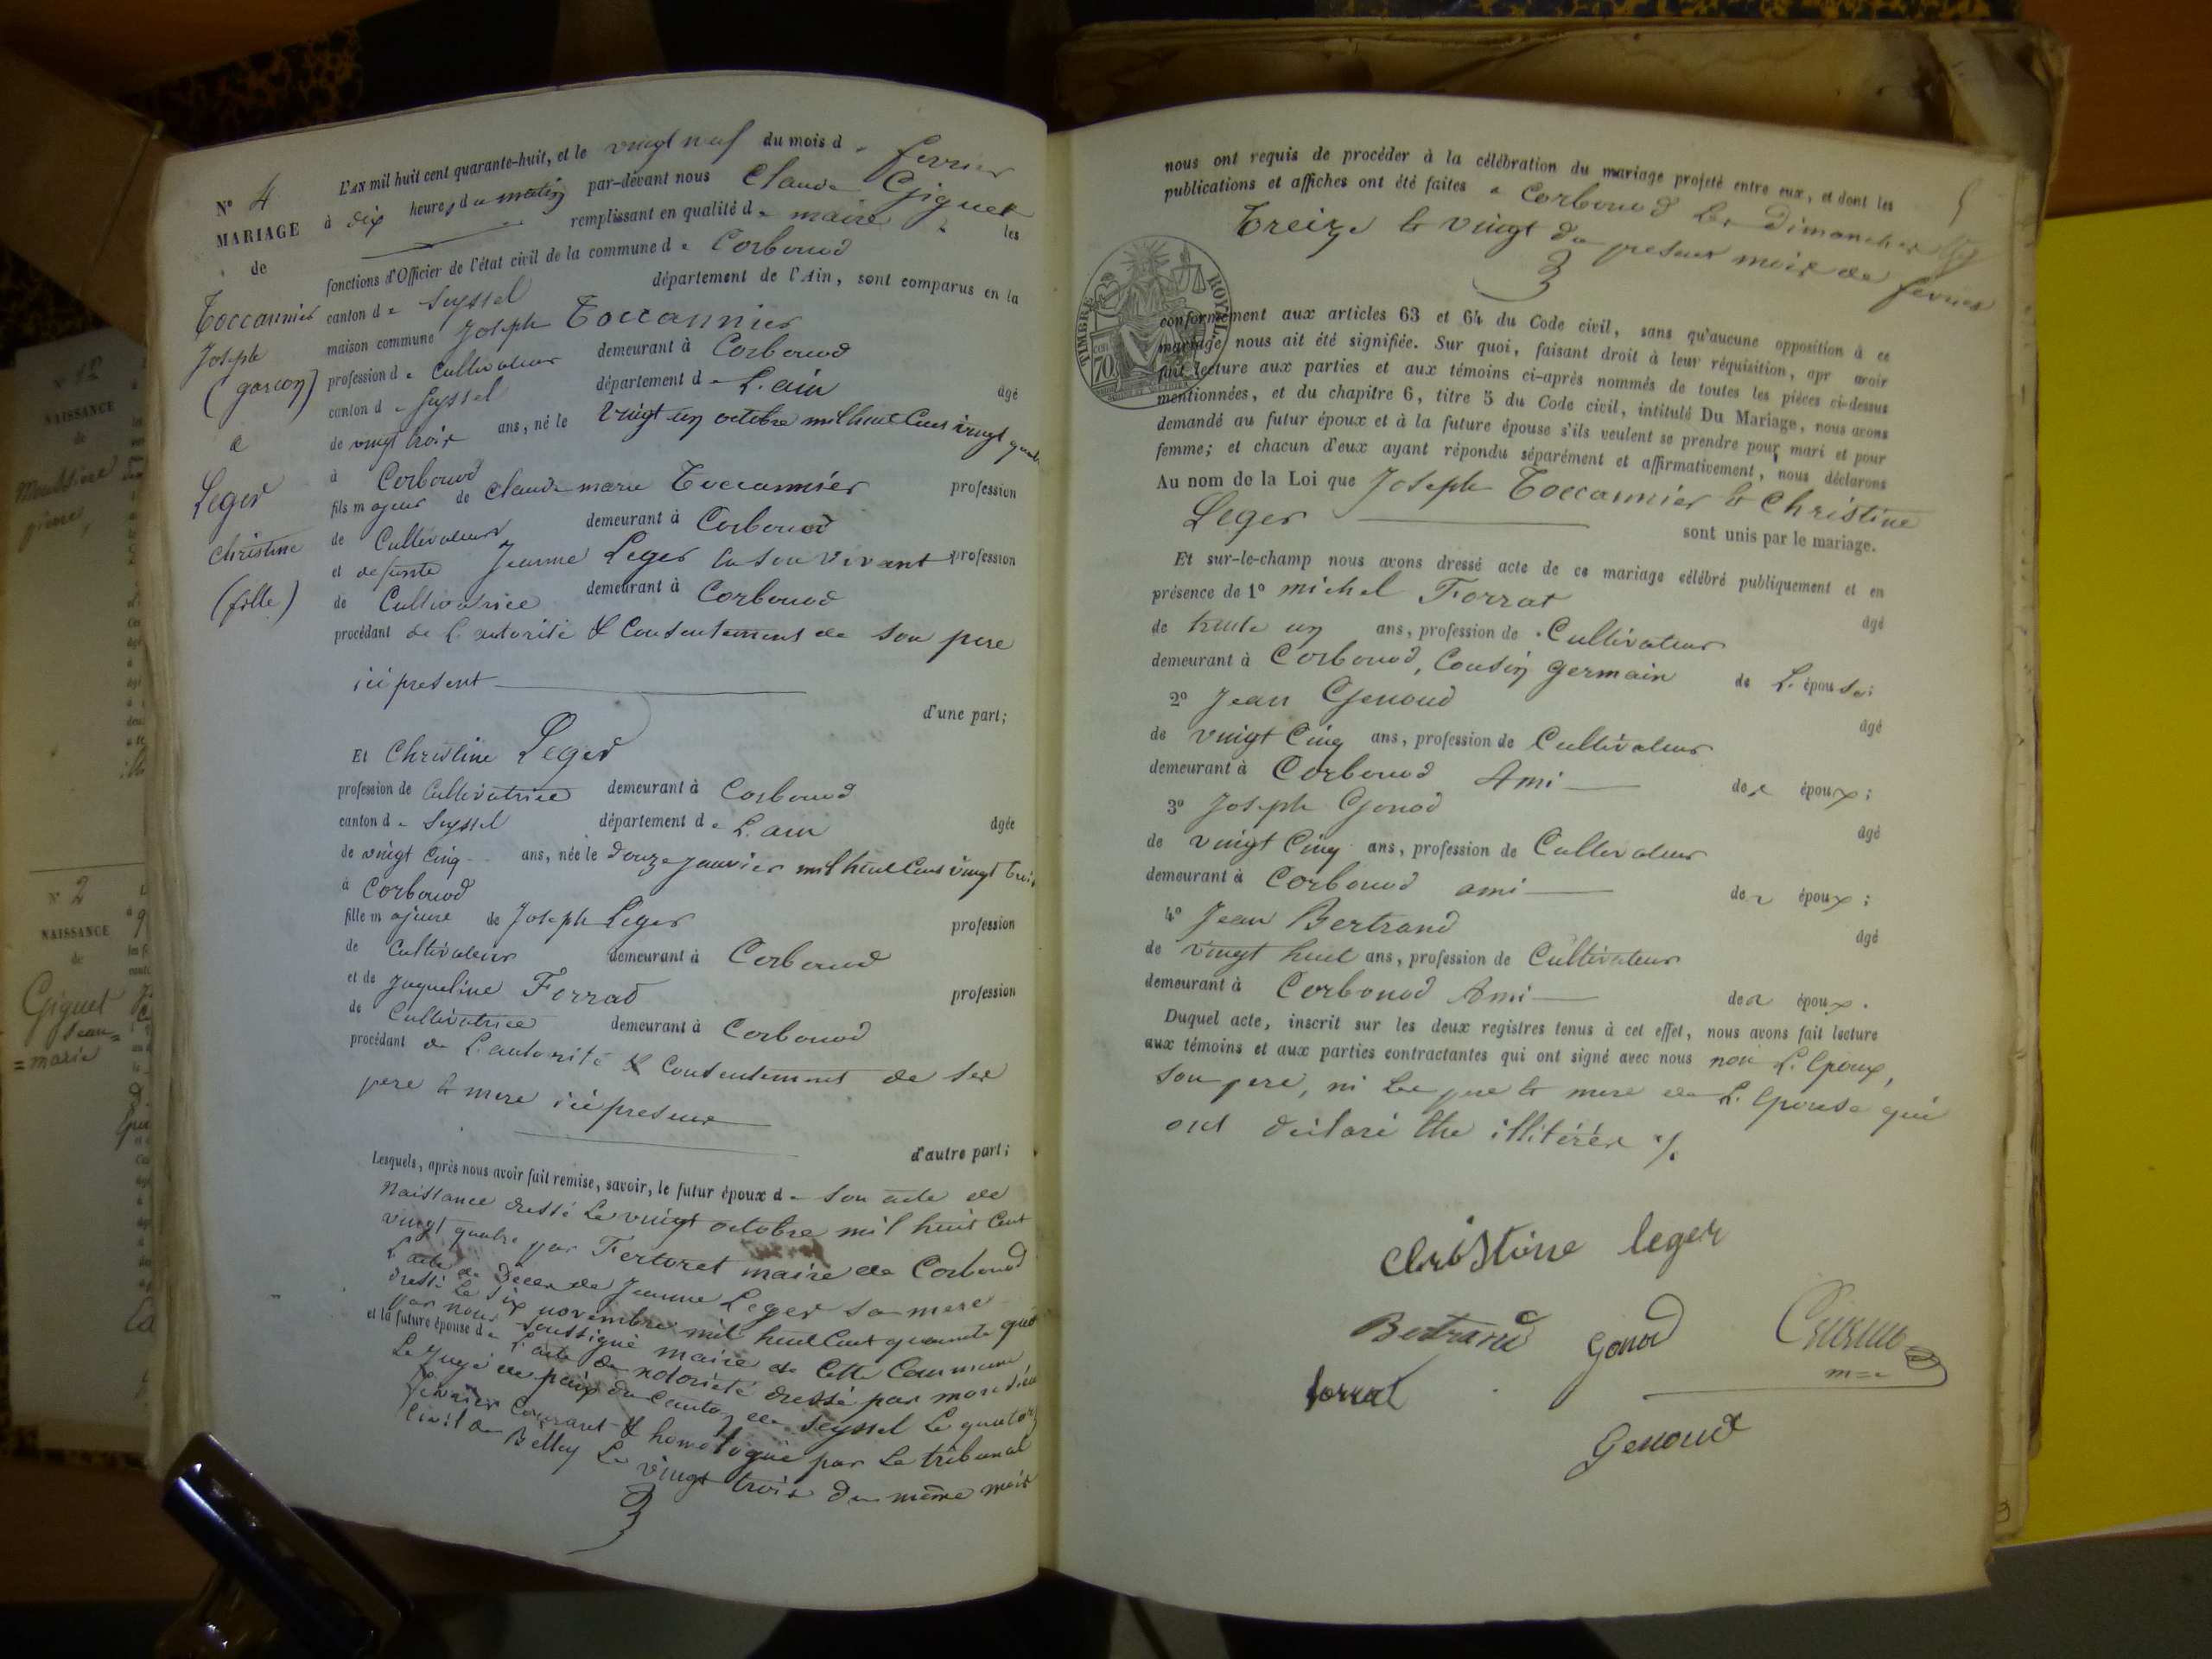 N° 4
MARIAGE
de
Toccannier
Joseph
(garçon)
a
Leger
Christine
(fille)
L'AN mil huit cent quarante-huit, et le vingt neuf du mois de fevrier
à dix heures du matin par-devant nous Claude Giguet
remplissant en qualité de maire les
fonctions d'Officier de l'état civil de la commune de Corbonod
canton de Seyssel département de l'Ain, sont comparus en la
maison commune Joseph Toccannier
profession de Cultivateur demeurant à Corbonod
canton de Seyssel département de L'ain âgé
de vingt trois ans, né le vingt un octobre mil huit Cent vingt quatre
à Corbonod
fils majeur de Claude marie Toccannier profession
de Cultivateur demeurant à Corbonod
et defunte Jeanne Leger en son vivant profession
de Cultivatrice demeurant à Corbonod
procédant de L'autorité & Consentement de son pere
ici present
d'une part;
Et Christine Leger
profession de Cultivatrice demeurant à Corbonod
canton de Seyssel département de L'ain âgée
de vingt Cinq ans, née le douze janvier mil huit Cent vingt trois
à Corbonod
fille majeure de Joseph Leger profession
de Cultivateur demeurant à Corbonod
et de Jaqueline Forrat profession
de Cultivatrice demeurant à Corbonod
procédant de L'autorité & Consentement de ses
pere & mere ici present
d'autre part;
Lesquels, après nous avoir fait remise, savoir, le futur époux de son acte de
Naissance dressé Le vingt octobre mil huit Cent
vingt quatre par Fertoret maire de Corbonod
L'acte de Décès de Jeanne Leger sa mere
dressé Le six novembre mil huit Cent quarante
par nous soussigné maire de Cette Commune
et la future épouse de L'acte de notoriété dressé par monsieur
Le Juge de paix du Canton de Seyssel Le quatorze
fevrier Courant & homologué par Le tribunal
Civil de Belley Le vingt trois du même mois
5
nous ont requis de procéder à la célébration du mariage projeté entre eux, et dont les
publications et affiches ont été faites a Corbonod les Dimanches
Treize & vingt du present mois de fevrier
TIMBRE ROYAL
70
conformément aux articles 63 et 64 du Code civil, sans qu'aucune opposition à ce
mariage nous ait été signifiée. Sur quoi, faisant droit à leur réquisition, apr avoir
fait lecture aux parties et aux témoins ci-après nommés de toutes les pièces ci-dessus
mentionnées, et du chapitre 6, titre 5 du Code civil, intitulé Du Mariage, nous avons
demandé au futur époux et à la future épouse s'ils veulent se prendre pour mari et pour
femme; et chacun d'eux ayant répondu séparément et affirmativement, nous déclarons
Au nom de la Loi que Joseph Toccannier & Christine
Leger sont unis par le mariage.
Et sur-le-champ nous avons dressé acte de ce mariage célébré publiquement et en
présence de 1° michel Forrat âgé
de trente un ans, profession de Cultivateur
demeurant à Corbonod, Cousin germain de L'épouse;
2° Jean Genoud âgé
de vingt Cinq ans, profession de Cultivateur
demeurant à Corbonod Ami de l' époux;
3° Joseph Gonod âgé
de vingt Cinq ans, profession de Cultivateur
demeurant à Corbonod ami de l' époux;
4° Jean Bertrand âgé
de vingt huit ans, profession de Cultivateur
demeurant à Corbonod Ami de l' époux.
Duquel acte, inscrit sur les deux registres tenus à cet effet, nous avons fait lecture
aux témoins et aux parties contractantes qui ont signé avec nous non L'Epoux,
son pere, ni Les pere & mere de L'Epouse qui
ont déclaré être illitérés
Christine leger
Bertrand Gonod
forrat
Genoud
N° 12
NAISSANCE
de
N° 2
NAISSANCE
de
Giguet
Jean=
=marie